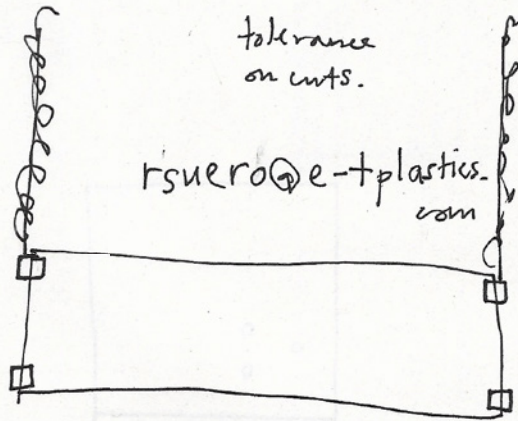 tolerance
on cuts.
rsuero@e-tplastics.
com